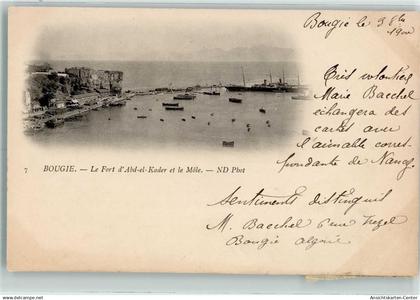 Bougie le 3 8bre
1900
Très volontiers
Marie Bacchel
échangera des
cartes avec
l'aimable corres-
pondante de Nancy.
7 BOUGIE. — Le Fort d'Abd-el-Kader et le Môle. — ND Phot
Sentiments distingués
M. Bacchel 6 rue Trézel
Bougie Algérie
Ansichtskarten-Center